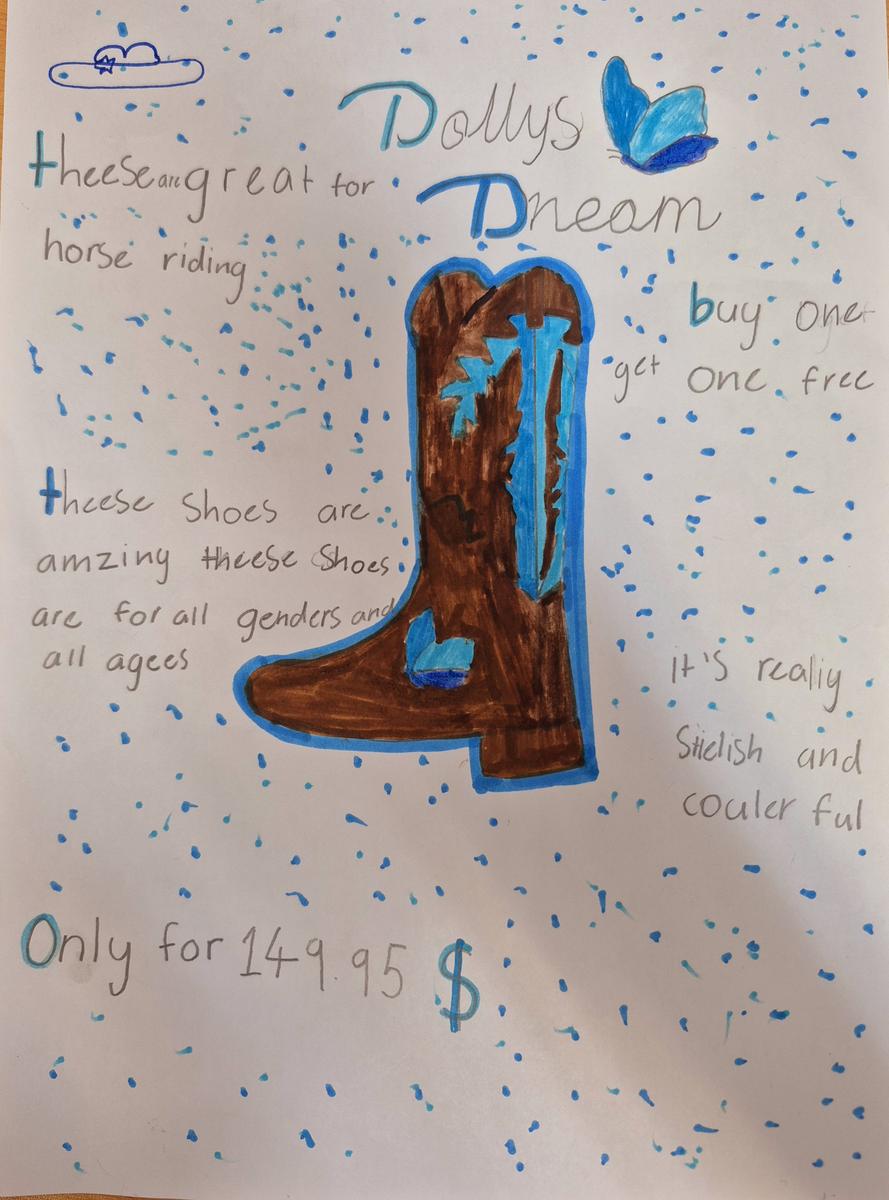 Dollys
Dream
theese are great for
horse riding
buy one
get one free
theese shoes are
amzing theese shoes
are for all genders and
all agees
it's realiy
Stielish and
couler ful
Only for 149.95 $